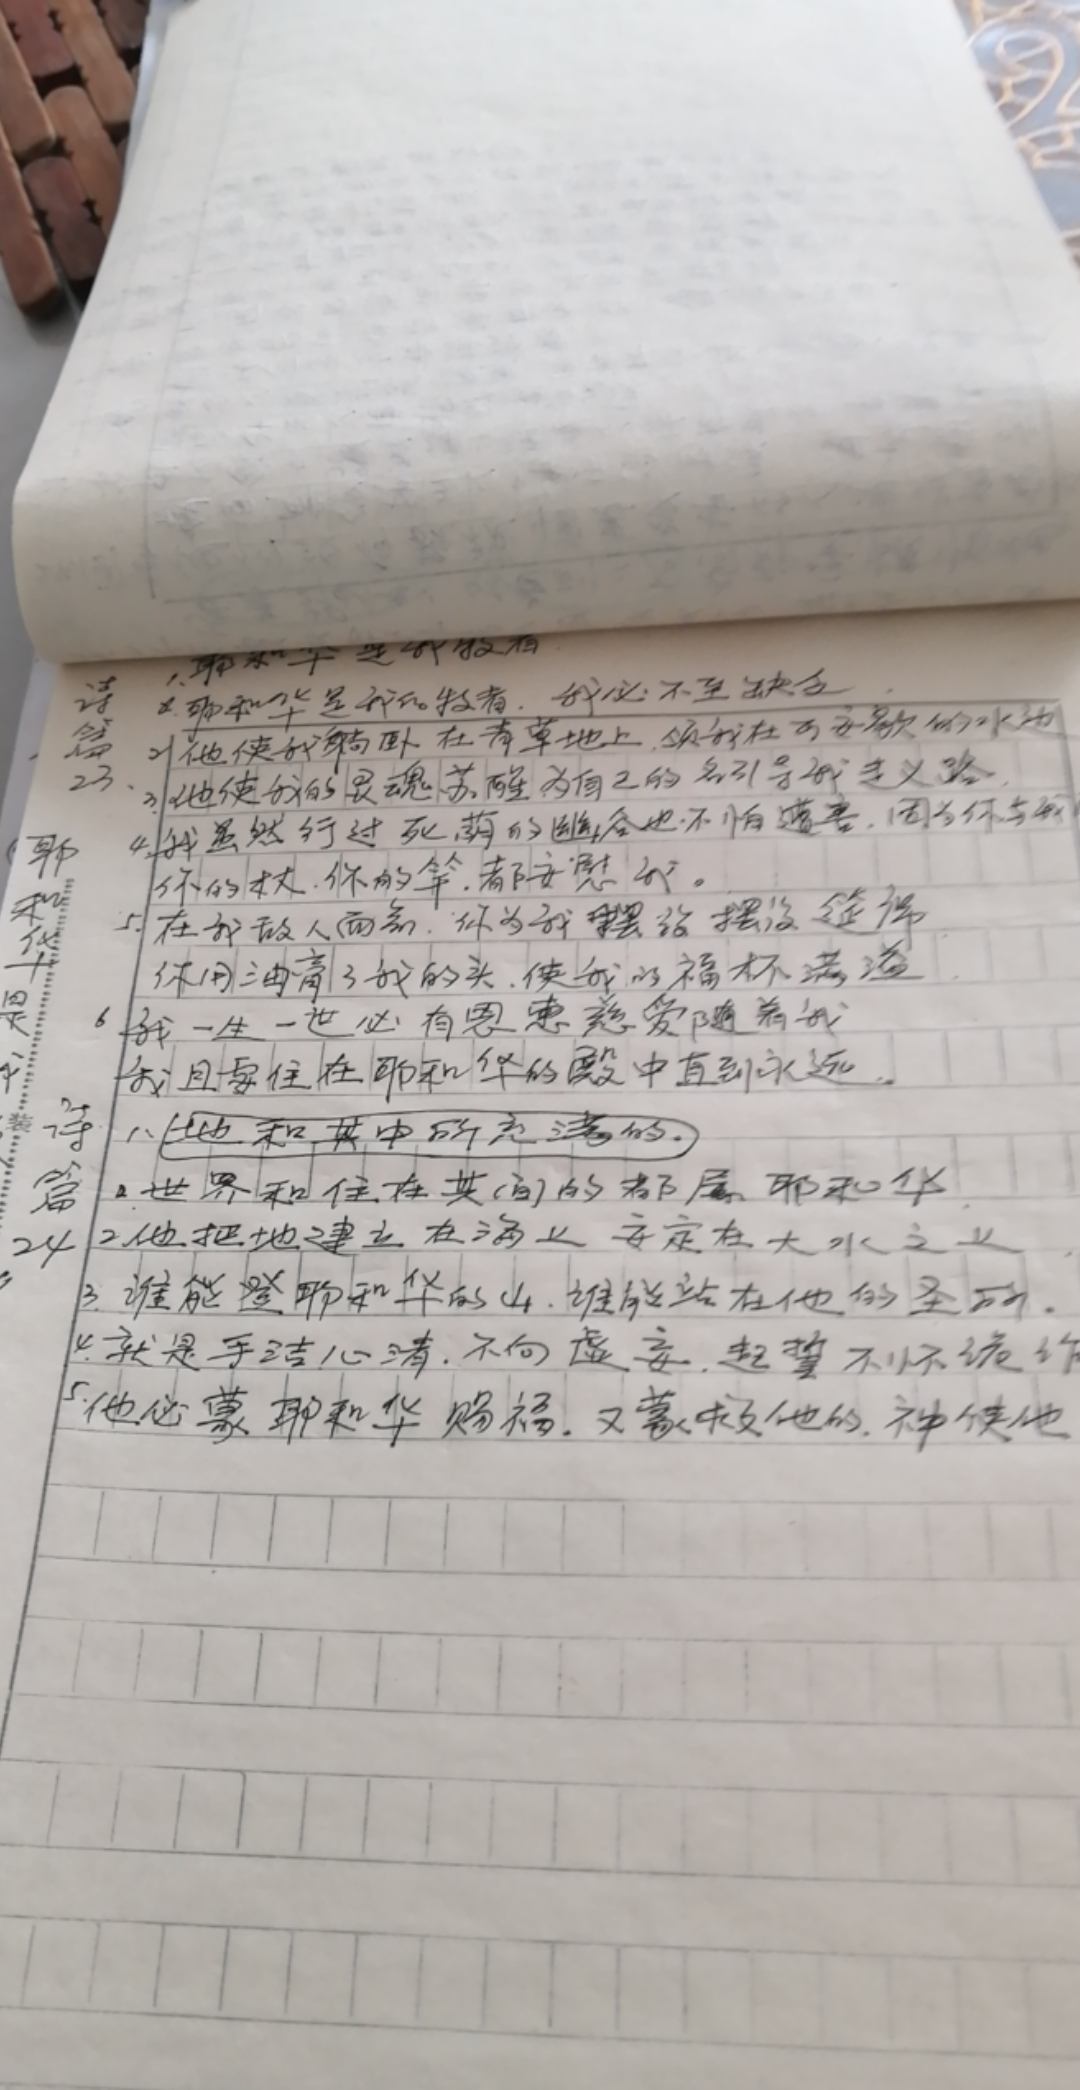 1.耶和华是我牧者
诗 耶和华是我的牧者.我必不至缺乏.
篇 2 他使我躺卧在青草地上.领我在可安歇的水边
23. 3.他使我的灵魂苏醒为自己的名引导我走义路.
4.我虽然行过死荫的幽谷也不怕遭害.因为你与我
你的杖.你的竿.都安慰我。
5.在我敌人面前.你为我摆设摆设筵席
你用油膏了我的头.使我的福杯满溢
6 我一生一世必有恩惠慈爱随着我
我且要住在耶和华的殿中直到永远.
耶和华是
装
诗 1、地和其中所充满的.
篇 世界和住在其间的都属耶和华
24 2.他把地建立在海上 安定在大水之上.
3.谁能登耶和华的山.谁能站在他的圣所.
4.就是手洁心清.不向虚妄.起誓不怀诡诈
5.他必蒙耶和华赐福.又蒙救他的.神使他